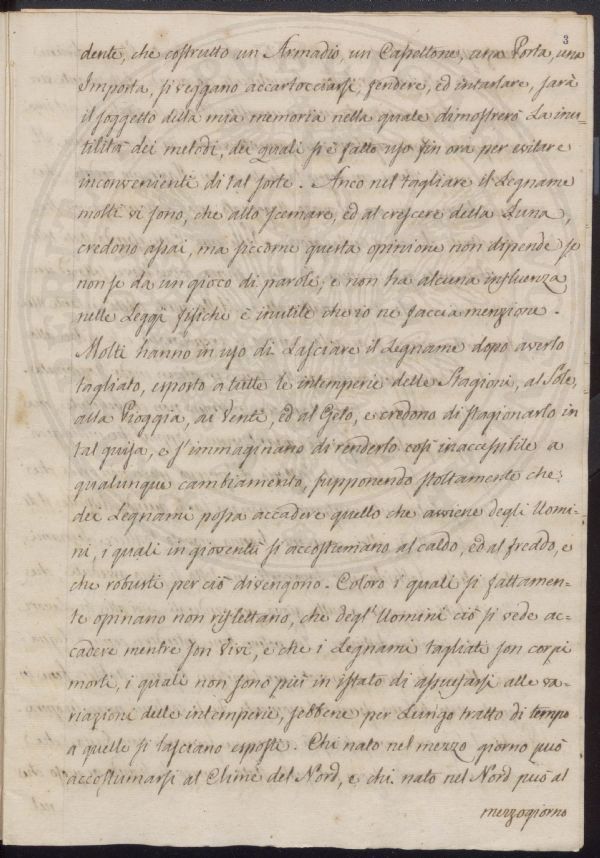 3
dente, che costrutto un Armadio, un Cassettone, una Porta, una
Importa, si veggano accartocciarsi, fendere, ed intarlare, sarà
il soggetto della mia memoria nella quale dimostrerò La inu=
tilità dei metodi, dei quali si è fatto uso fin ora per evitare
inconvenienti di tal sorte. Anco nel tagliare il Legname
molti vi sono, che allo scemare, ed al crescere della Luna,
credono assai, ma siccome questa opinione non dipende se
non se da un gioco di parole, e non ha alcuna influenza
nelle Leggi fisiche è inutile che io ne faccia menzione.
Molti hanno in uso di Lasciare il Legname dopo averlo
tagliato, esposto a tutte le intemperie delle Stagioni, al Sole,
alla Pioggia, ai Venti, ed al Gelo, e credono di stagionarlo in
tal guisa, e s'immaginano di renderlo così inaccessibile a
qualunque cambiamento, supponendo stoltamente che
dei Legnami possa accadere quello che avviene degli Uomi=
ni, i quali in gioventù si accostumano al caldo, ed al freddo, e
che robusti per ciò divengono. Coloro i quali sì fattamen=
te opinano non riflettano, che degl'Uomini ciò si vede ac=
cadere mentre son vivi, e che i Legnami tagliati son corpi
morti, i quali non sono più in istato di assuefarsi alle va=
riazioni delle intemperie, sebbene per Lungo tratto di tempo
a quelle si lasciano esposti. Chi nato nel mezzo giorno può
accostumarsi al Clima del Nord, e chi nato nel Nord può al
mezzogiorno